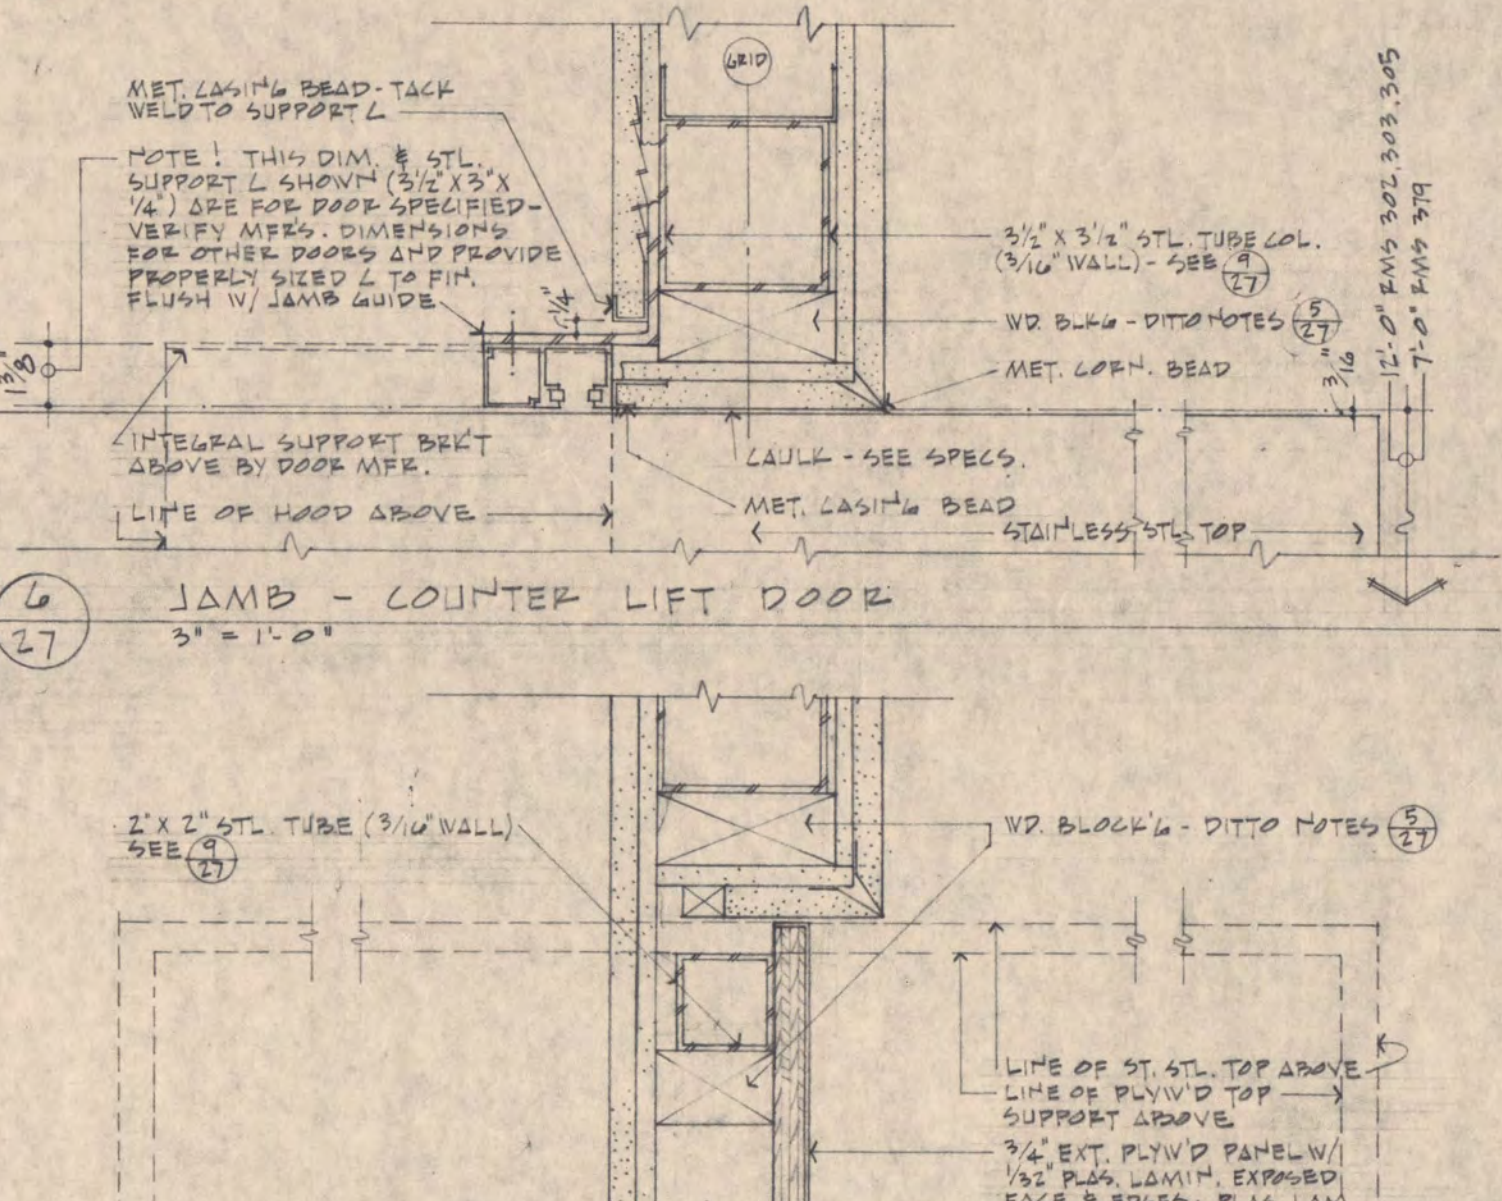 GRID
MET. CASING BEAD - TACK
WELD TO SUPPORT L
NOTE! THIS DIM. & STL.
SUPPORT L SHOWN (3 1/2" X 3" X
1/4") ARE FOR DOOR SPECIFIED -
VERIFY MFR'S. DIMENSIONS
FOR OTHER DOORS AND PROVIDE
PROPERLY SIZED L TO FIN.
FLUSH W/ JAMB GUIDE
1/4"
1 3/8"
3 1/2" X 3 1/2" STL. TUBE COL.
(3/16" WALL) - SEE 9/27
WD. BLKG - DITTO NOTES 5/27
MET. CORN. BEAD
3/16"
12'-0" RMS 302, 303, 305
7'-0" RMS 379
INTEGRAL SUPPORT BRK'T
ABOVE BY DOOR MFR.
CAULK - SEE SPECS.
LINE OF HOOD ABOVE
MET. CASING BEAD
STAINLESS STL. TOP
6
27
JAMB - COUNTER LIFT DOOR
3" = 1'-0"
2" X 2" STL. TUBE (3/16" WALL)
SEE 9/27
WD. BLOCK'G - DITTO NOTES 5/27
LINE OF ST. STL. TOP ABOVE
LINE OF PLYW'D TOP
SUPPORT ABOVE
3/4" EXT. PLYW'D PANEL W/
1/32" PLAS. LAMIN. EXPOSED
FACE & EDGES